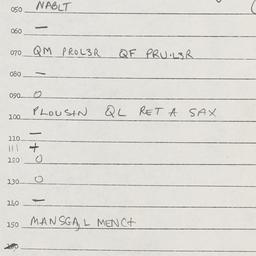 050 NABLT
060 —
070 QM PROL3R QF PRU·L3R
080 —
090 O
100 PLOUSIN QL RET A SAX
110 —
111 +
120 O
130 O
140 —
150 MANSGA, L MENCH